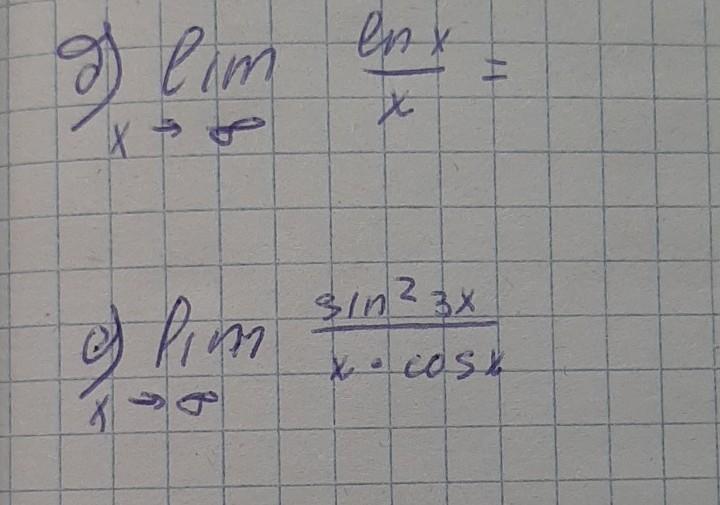 д) lim ln x / x =
x → ∞
е) lim sin² 3x / x · cos x
x → ∞